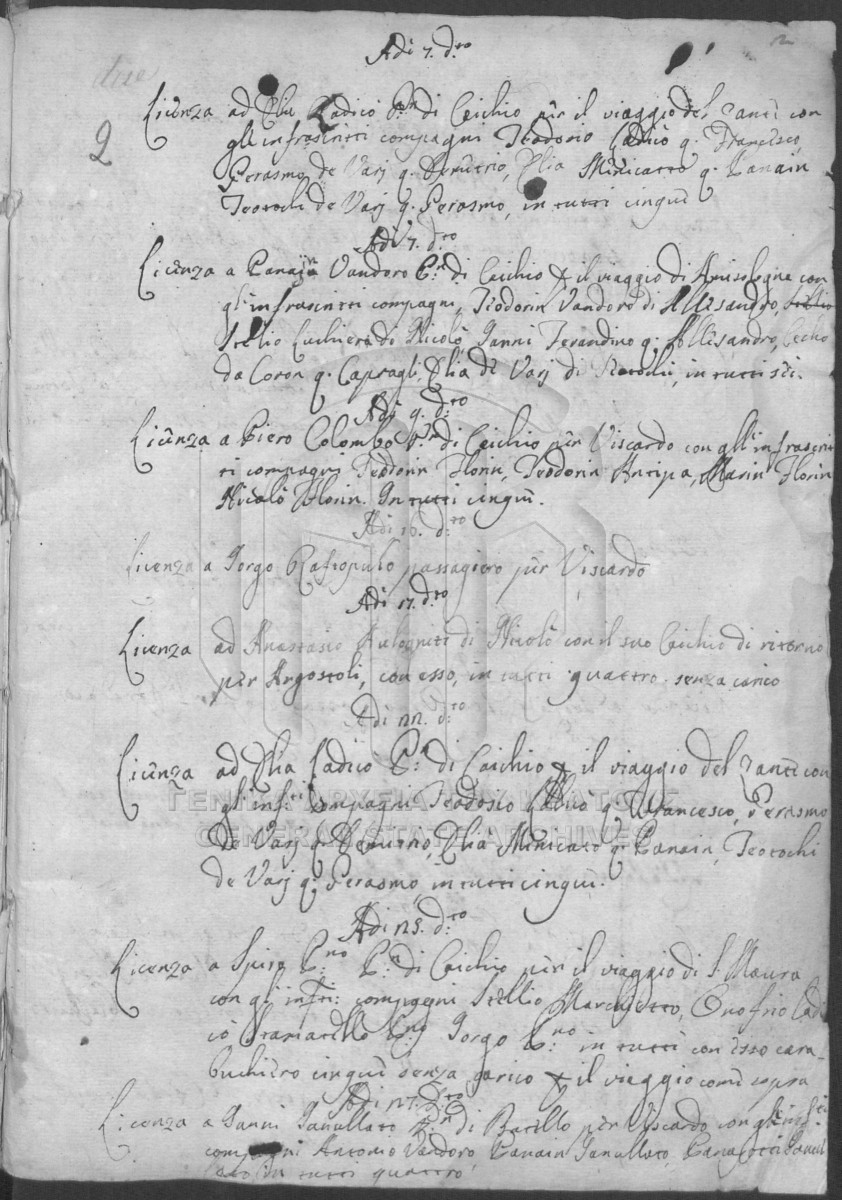 2
due
2
Adi 7. d.ro
Licenza ad Elia Ladicò P.n di Caichio per il viaggio del Zante con
gl'infrascritti compagni Teodosio Ladicò q. Francesco,
Gerasmo de Varj q. Demetrio, Elia Minicatto q. Panain
Teotochi de Varj q. Gerasmo, in tutti cinque
Adi 7. d.ro
Licenza a Panajin Vandoro P.n di Caichio il viaggio di con
gl'infrascritti compagni, Teodorin Vandoro di Allesandro,
Stelio di Nicolò, Janni Ferandino q. Allesandro,
da Coron q. Elia de Varj di in tutti sei.
Adi 9. d.ro
Licenza a Piero Colombo P.n di Caichio per Viscardo con gl'infrascrit
ti compagni Teodorin Florin, Teodorin Antipa, Marin Florin
Nicolò Florin. In tutti cinque.
Adi 10. d.ro
Licenza a Jorgo Rafiopulo passagiero per Viscardo
Adi 17. d.ro
Licenza ad Anastasio di Nicolò con il suo Caichio di ritorno
per Argostoli, con esso, in tutti quattro senza carico
Adi 22. d.ro
Licenza ad Elia Ladico P.n di Caichio il viaggio del Zante con
gl'inf.ti compagni Teodosio Ladicò q. Francesco, Gerasmo
de Varj q. Demetrio, Elia Minicato q. Panain, Teotochi
de Varj q. Gerasmo, in tutti cinque.
Adi 25. d.ro
Licenza a Spiro P.n di Caichio per il viaggio di S. Maura
con gl'inf.ti compagni Stellio Marchetto, Onofrio Ladi
cò Jorgo in tutti con esso cara-
buchiero cinque senza carico il viaggio come sopra
Adi 27. d.ro
Licenza a Janni Janullato P.n di Batello per Viscardo con gl'infri
compagni Antonio Vandoro, Panain Janullato,
in tutti quattro
ΓΕΝΙΚΑ ΑΡΧΕΙΑ ΤΟΥ ΚΡΑΤΟΥΣ
GENERAL STATE ARCHIVES